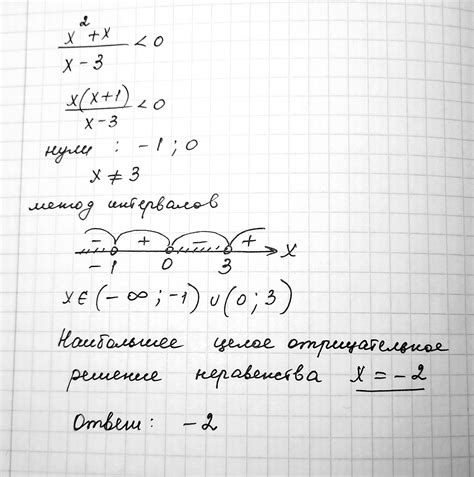 x² + x / x - 3 < 0
x(x+1) / x - 3 < 0
нули : - 1 ; 0
x ≠ 3
метод интервалов
- + - +
- 1 0 3 x
x ∈ (- ∞ ; -1) ∪ (0 ; 3)
Наибольшее целое отрицательное
решение неравенства x = - 2
Ответ: - 2